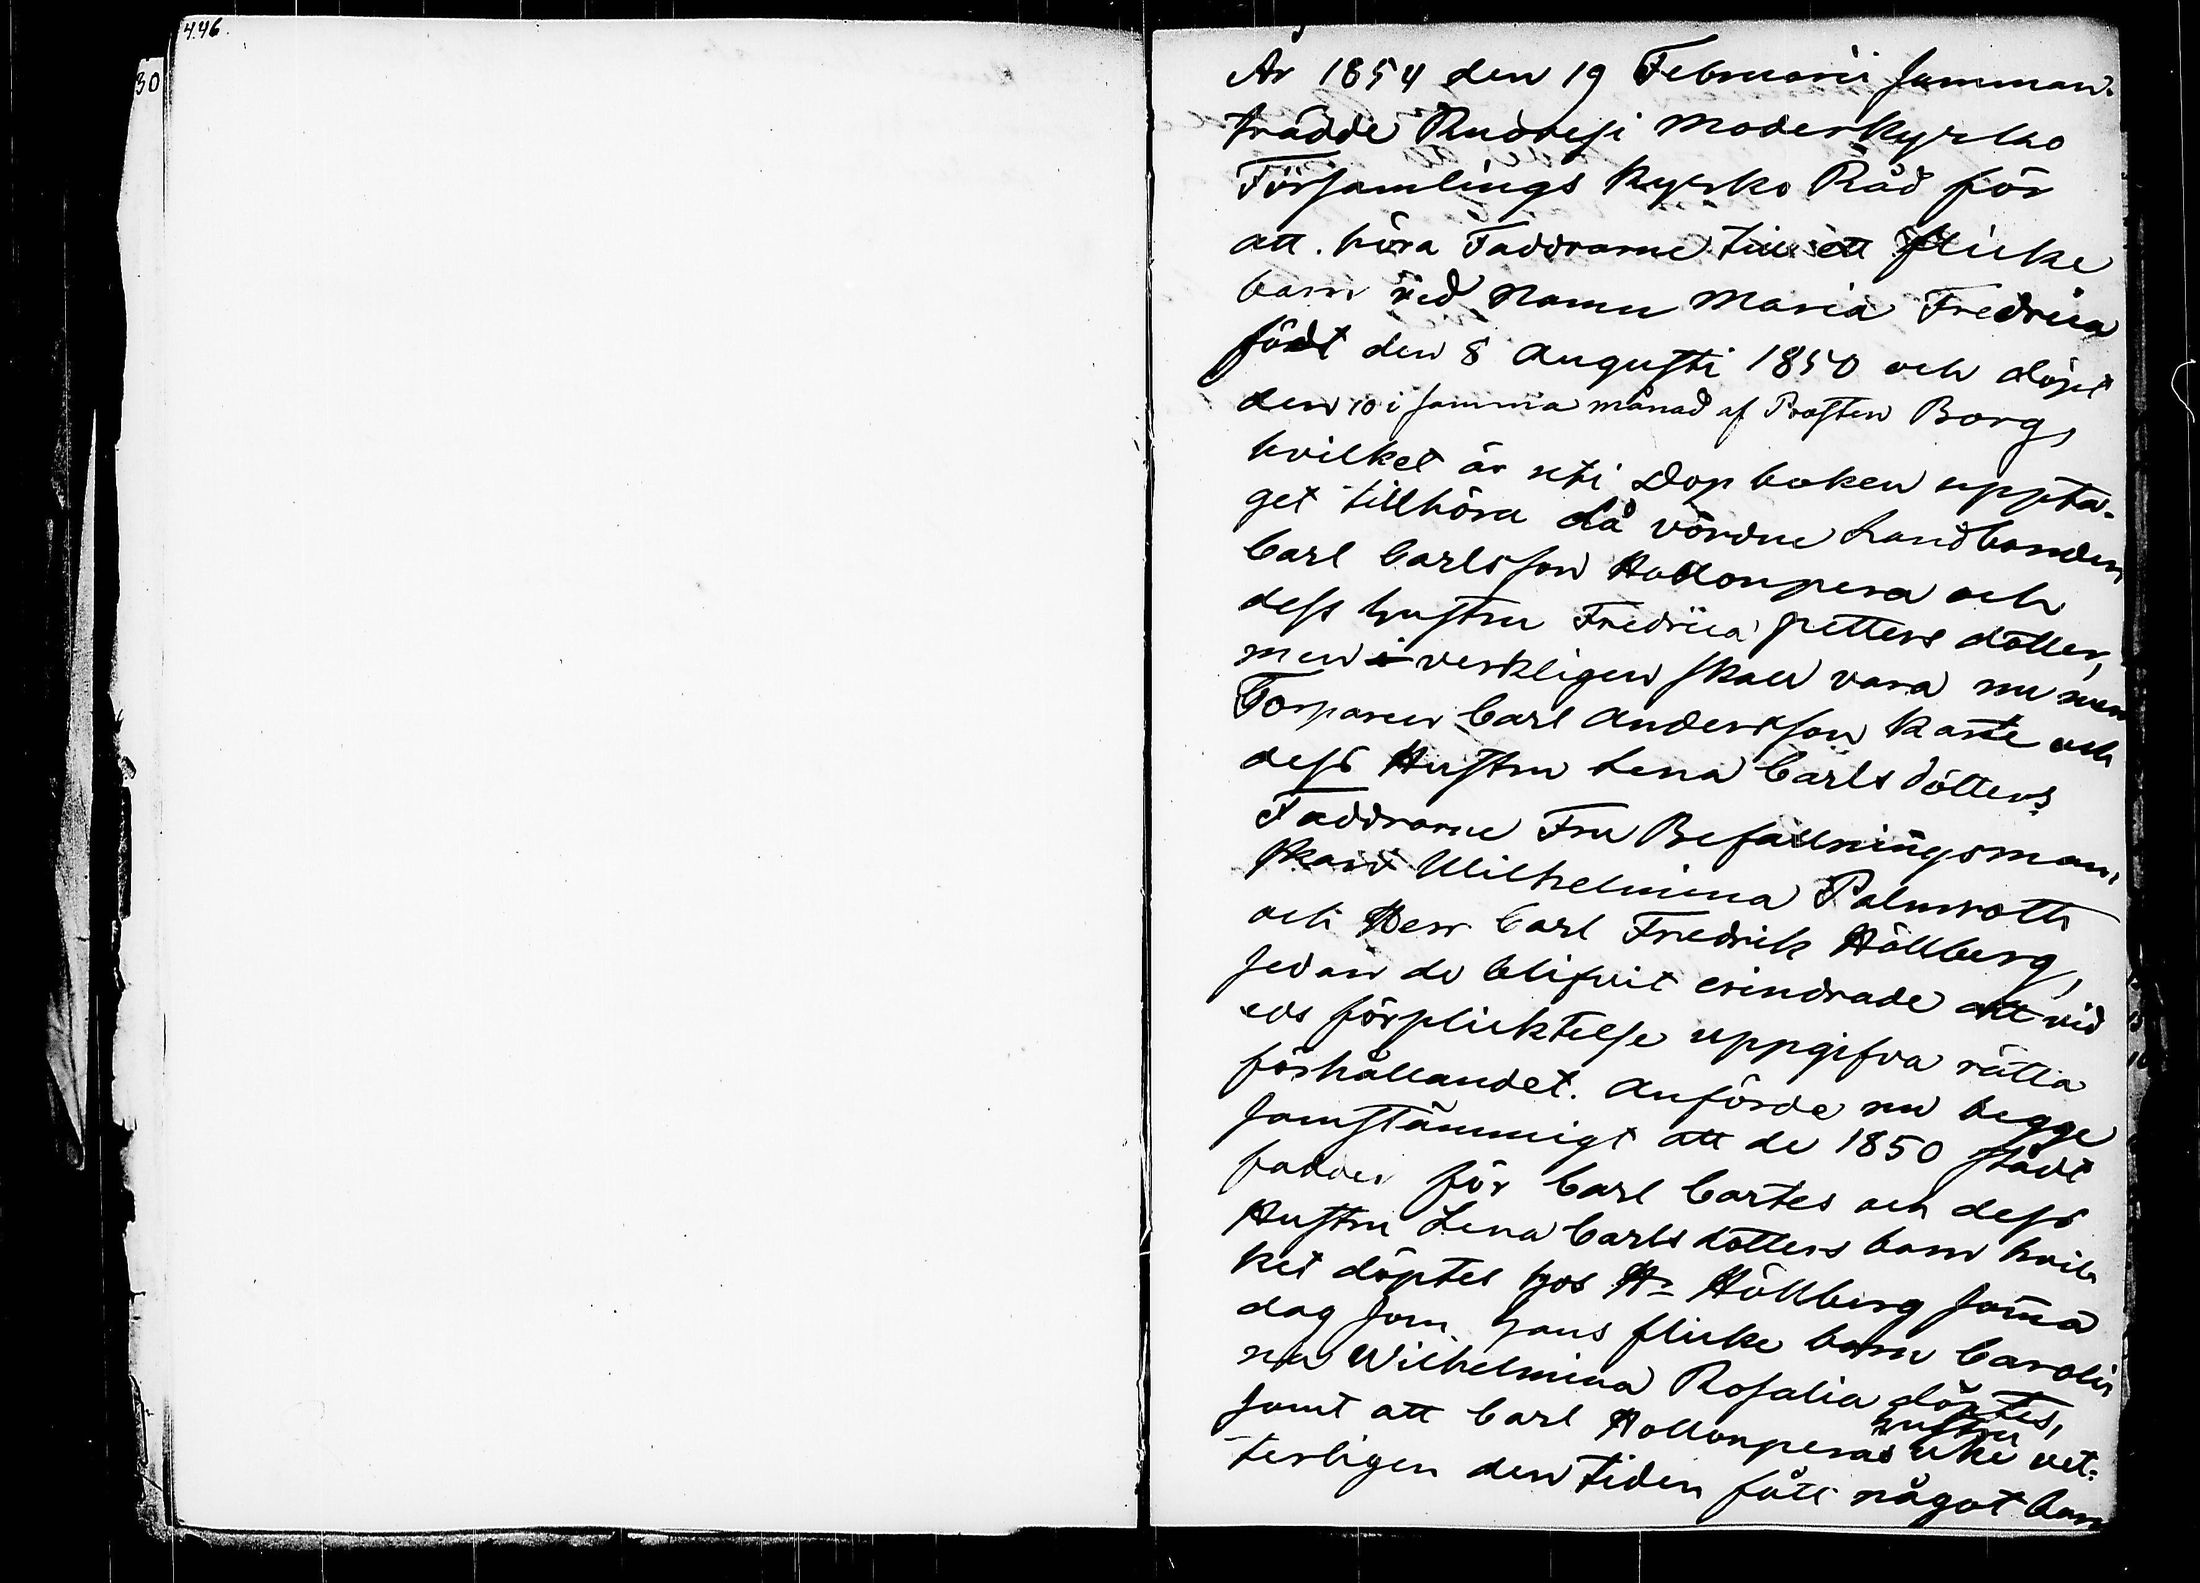 446.
30
År 1854 den 19 Februarii samman-
trädde Ruovesi Moderkyrko
Församlings Kyrko Råd för
att höra Faddrarne till ett flicke
barn vid namn Maria Fredrica
födt den 8 Augusti 1850 och döpt
den 10 i samma månad af Prosten Borg,
hvilket är uti Dop boken uppta-
get tillhöra då vördne landbonden
Carl Carlsson Hollonpera och
dess hustru Fredrica Petters dotter,
men i verkligen skall vara nu men
Torparen Carl Andersson Karte och
dess Hustru Lena Carls dotters
Faddrarne Fru Befallningsman,
skan Wilhelmina Palmroth
och Herr Carl Fredrik Höllberg,
sedan de blifvit erindrade att vid
eds förplicktelse uppgifva rätta
förhållandet. Anförde nu begge
samstämmigt att de 1850 stådt
fadder för Carl Cartes och dess
Hustru Lena Carls dotters barn hvil-
ket döptes hos Hr Höllberg samma
dag som hans flicke barn Caroli
na Wilhelmina Rosalia döptes,
samt att Carl Hollonperas hustru icke vet-
terligen den tiden fått något barn